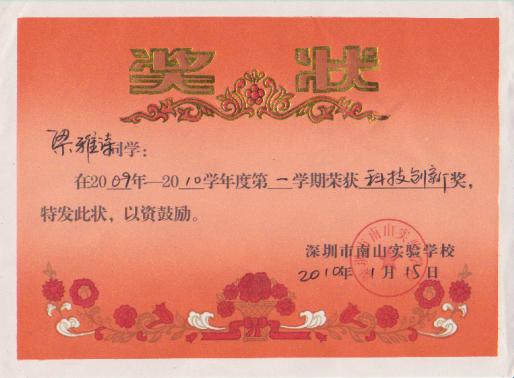 奖状
梁雅涛同学:
在2009年—2010学年度第一学期荣获科技创新奖,
特发此状,以资鼓励。
深圳市南山实验学校
2010年1月15日